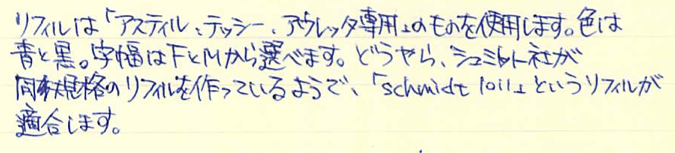 リフィルは「アスティル、テッシー、アウレッタ専用」のものを使用します。色は
青と黒。字幅はFとMから選べます。どうやら、シュミット社が
同規格のリフィルを作っているようで、「schmidt 1011」というリフィルが
適合します。